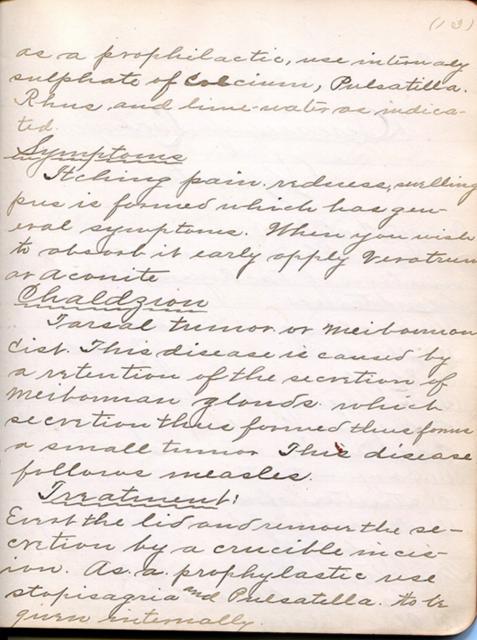 (13)
as a prophilactic, use internaly
sulphate of Calcium, Pulsatilla.
Rhus, and lime-water as indica-
ted.
Symptoms
Itching pain. redness, swelling
pus is formed which has gen-
eral symptoms. When you wish
to absorb it early apply Veratrum
or Aconite
Chaldzion
Tarsal tumor or Meibomian
cist. This disease is caused by
a retention of the secretion of
Meibomian glands which
secretion thus formed thus forms
a small tumor. This disease
follows measles.
Treatment:
Evert the lid and remove the se-
cretion by a crucible incis-
ion. As a prophylastic use
stapisagria and Pulsatilla. to be
given internally.